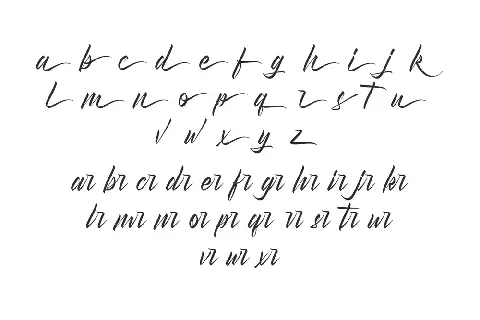 a b c d e f g h i j k
l m n o p q r s t u
v w x y z
ar br cr dr er fr gr hr ir jr kr
lr mr nr or pr qr rr sr tr ur
vr wr xr